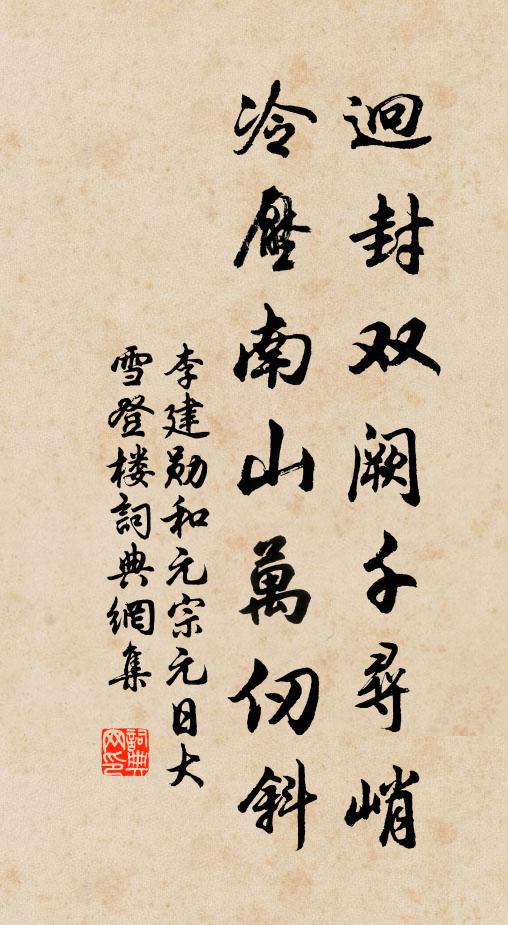 迥封双阙千尋峭
冷壓南山萬仞斜
李建勋和元宗元日大
雪登楼詞典網集
詞典
网印